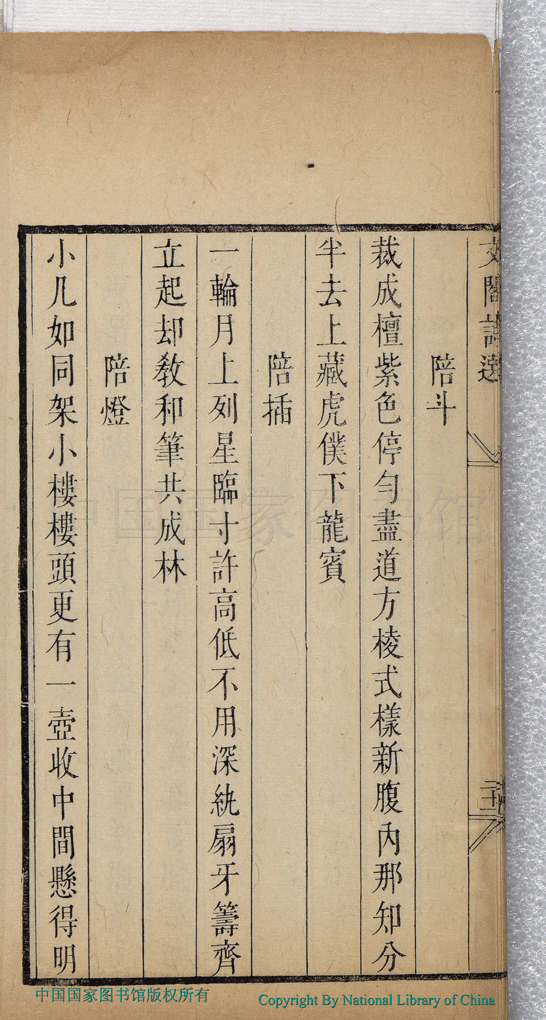 文閣詩選
陪斗
裁成檀紫色停勻盡道方棱式樣新腹內那知分
半去上藏虎僕下龍賓
陪插
一輪月上列星臨寸許高低不用深紈扇牙籌齊
立起却敎和筆共成林
陪燈
小几如同架小樓樓頭更有一壺收中間懸得明
中国国家图书馆
中国国家图书馆版权所有
Copyright By National Library of China